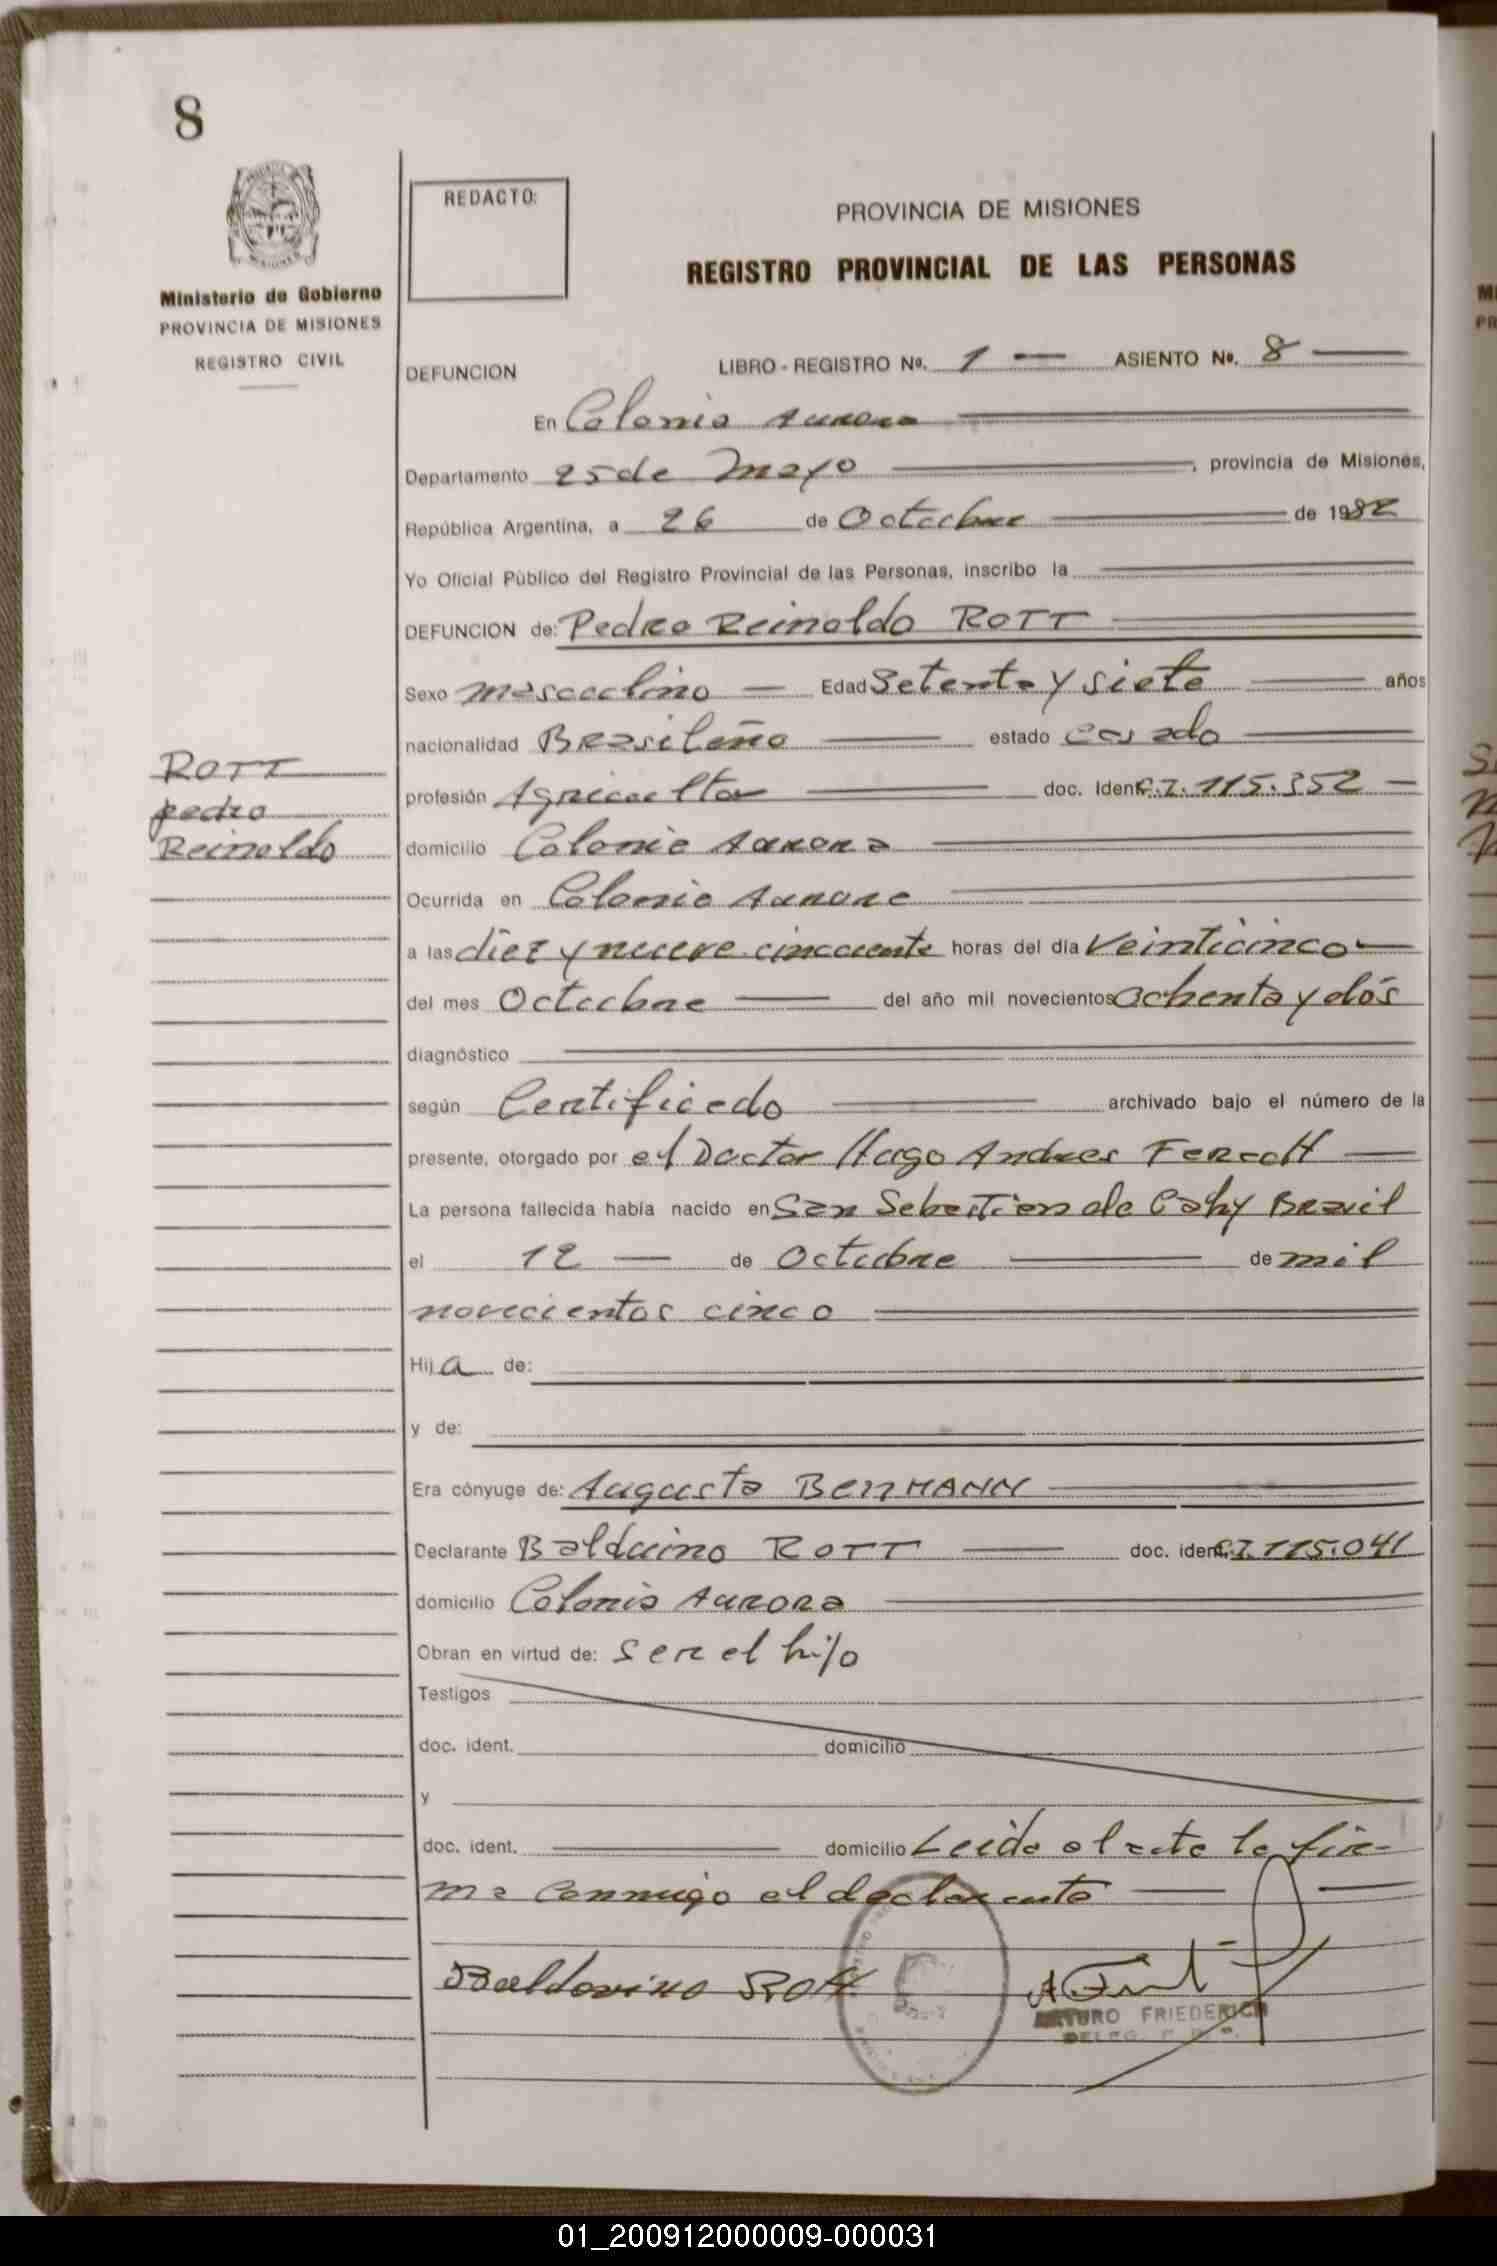 8
REDACTO:
PROVINCIA DE MISIONES
REGISTRO PROVINCIAL DE LAS PERSONAS
Ministerio de Gobierno
PROVINCIA DE MISIONES
REGISTRO CIVIL
DEFUNCION LIBRO - REGISTRO Nº. 1 — ASIENTO Nº. 8
En Colonia Aurora
Departamento 25 de Mayo, provincia de Misiones,
República Argentina, a 26 de Octubre de 1982
Yo Oficial Público del Registro Provincial de las Personas, inscribo la
DEFUNCION de: Pedro Reinaldo ROTT
Sexo masculino — Edad Setenta y siete años
nacionalidad Brasileño estado casado
ROTT
pedro
Reinaldo
profesión Agricultor doc. Ident. C.I. 115.352 —
domicilio Colonia Aurora
Ocurrida en Colonia Aurora
a las diez y nueve cincuenta horas del día Veinticinco
del mes Octubre del año mil novecientos ochenta y dós
diagnóstico
según Certificado archivado bajo el número de la
presente, otorgado por el Doctor Hugo Andres
La persona fallecida había nacido en San Sebastian de Cahy Brasil
el 12 — de Octubre de mil
novecientos cinco
Hij a de:
y de:
Era cónyuge de: Augusta
Declarante Balduino ROTT doc. ident. C.I. 115.041
domicilio Colonia Aurora
Obran en virtud de: Ser el hijo
Testigos
doc. ident. domicilio
y
doc. ident. domicilio Leida el acta la fir-
ma conmigo el declarante
Baldovino Rott
ARTURO FRIEDERICH
01_200912000009-000031